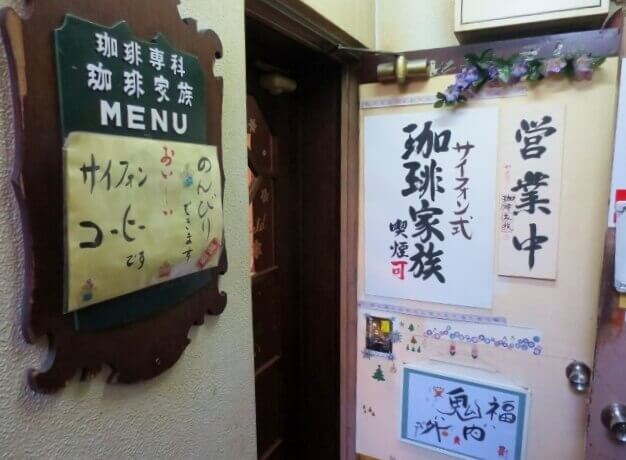 珈琲専科
珈琲家族
MENU
のんびり
できます
おい〜しい
サイフォン
コーヒーです
営業中
珈琲家族
サイフォン式
珈琲家族
喫煙可
福内
鬼外